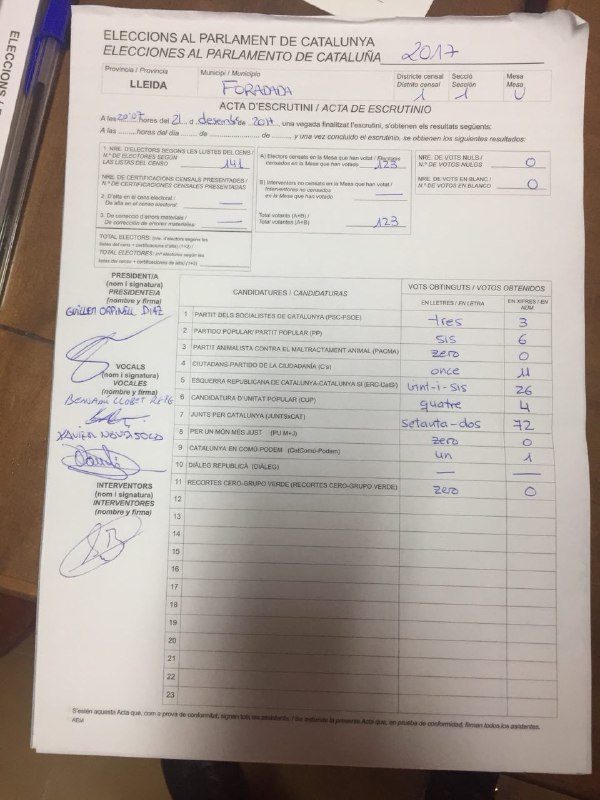 ELECCIONS AL PARLAMENT DE CATALUNYA
ELECCIONES AL PARLAMENTO DE CATALUÑA 2017
Provincia / Provincia
LLEIDA
Municipi / Municipio
FORADADA
Districte censal
Distrito censal
1
Secció
Sección
1
Mesa
Mesa
U
ACTA D'ESCRUTINI / ACTA DE ESCRUTINIO
A les 20:07 hores del 21 d desembre de 2017, una vegada finalitzat l'escrutini, s'obtenen els resultats següents:
A las .......... horas del día ...... de .................. de ........... y una vez concluido el escrutinio, se obtienen los siguientes resultados:
1. NRE. D'ELECTORS SEGONS LES LLISTES DEL CENS /
N.º DE ELECTORES SEGÚN
LAS LISTAS DEL CENSO 141
NRE. DE CERTIFICACIONS CENSALS PRESENTADES /
N.º DE CERTIFICACIONES CENSALES PRESENTADAS
2. D'alta en el cens electoral /
De alta en el censo electoral —
3. De correcció d'errors materials /
De corrección de errores materiales —
TOTAL ELECTORS: (nre. d'electors segons les
llistes del cens + certificacions d'alta) (1+2) /
TOTAL ELECTORES: (n.º electores según las
listas del censo + certificaciones de alta) (1+2)
A) Electors censats en la Mesa que han votat / Electores
censados en la Mesa que han votado 123
B) Interventors no censats en la Mesa que han votat /
Interventores no censados
en la Mesa que han votado —
Total votants (A+B) /
Total votantes (A+B) 123
NRE. DE VOTS NULS /
N.º DE VOTOS NULOS 0
NRE. DE VOTS EN BLANC /
N.º DE VOTOS EN BLANCO 0
PRESIDENT/A
(nom i signatura)
PRESIDENTE/A
(nombre y firma)
VOCALS
(nom i signatura)
VOCALES
(nombre y firma)
INTERVENTORS
(nom i signatura)
INTERVENTORES
(nombre y firma)
CANDIDATURES / CANDIDATURAS
VOTS OBTINGUTS / VOTOS OBTENIDOS
EN LLETRES / EN LETRA
EN XIFRES / EN NÚM.
1 PARTIT DELS SOCIALISTES DE CATALUNYA (PSC-PSOE) tres 3
2 PARTIDO POPULAR/ PARTIT POPULAR (PP) sis 6
3 PARTIT ANIMALISTA CONTRA EL MALTRACTAMENT ANIMAL (PACMA) zero 0
4 CIUTADANS-PARTIDO DE LA CIUDADANÍA (C's) once 11
5 ESQUERRA REPUBLICANA DE CATALUNYA-CATALUNYA SÍ (ERC-CatSí) vint-i-sis 26
6 CANDIDATURA D'UNITAT POPULAR (CUP) quatre 4
7 JUNTS PER CATALUNYA (JUNTSxCAT) setanta-dos 72
8 PER UN MÓN MÉS JUST (PUM+J) zero 0
9 CATALUNYA EN COMÚ-PODEM (CatComú-Podem) un 1
10 DIÀLEG REPUBLICÀ (DIÀLEG) — —
11 RECORTES CERO-GRUPO VERDE (RECORTES CERO-GRUPO VERDE) zero 0
12
13
14
15
16
17
18
19
20
21
22
23
S'estén aquesta Acta que, com a prova de conformitat, signen tots els assistents. / Se extiende la presente Acta que, en prueba de conformidad, firman todos los asistentes.
ELECCIONS /